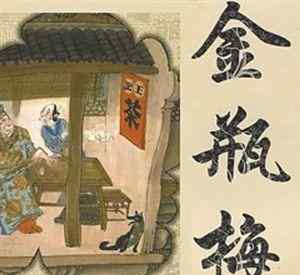 金瓶梅
茶